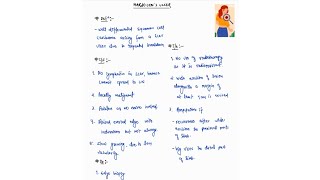 MARJOLIN'S ULCER
* Def :-
- well differentiated squamous cell
carcinoma arising from a scar
ulcer due to repeated breakdown.
* C/F :-
1. No lymphatics in scar, hence
cannot spread to LN
2. Locally malignant
3. Painless as no nerve
4. Raised everted edge with
induration but not always
5. Slow growing due to less
vascularity
* Ix :-
1. edge biopsy
* Rx :-
1. No use of radiotherapy
as it is radioresistant
2. wide excision of lesion
alongwith a margin of
at least 1cm is needed
3. Amputation if
- recurrence after wide
excision in proximal parts of
limb
- big ulcer in distal part
of limb